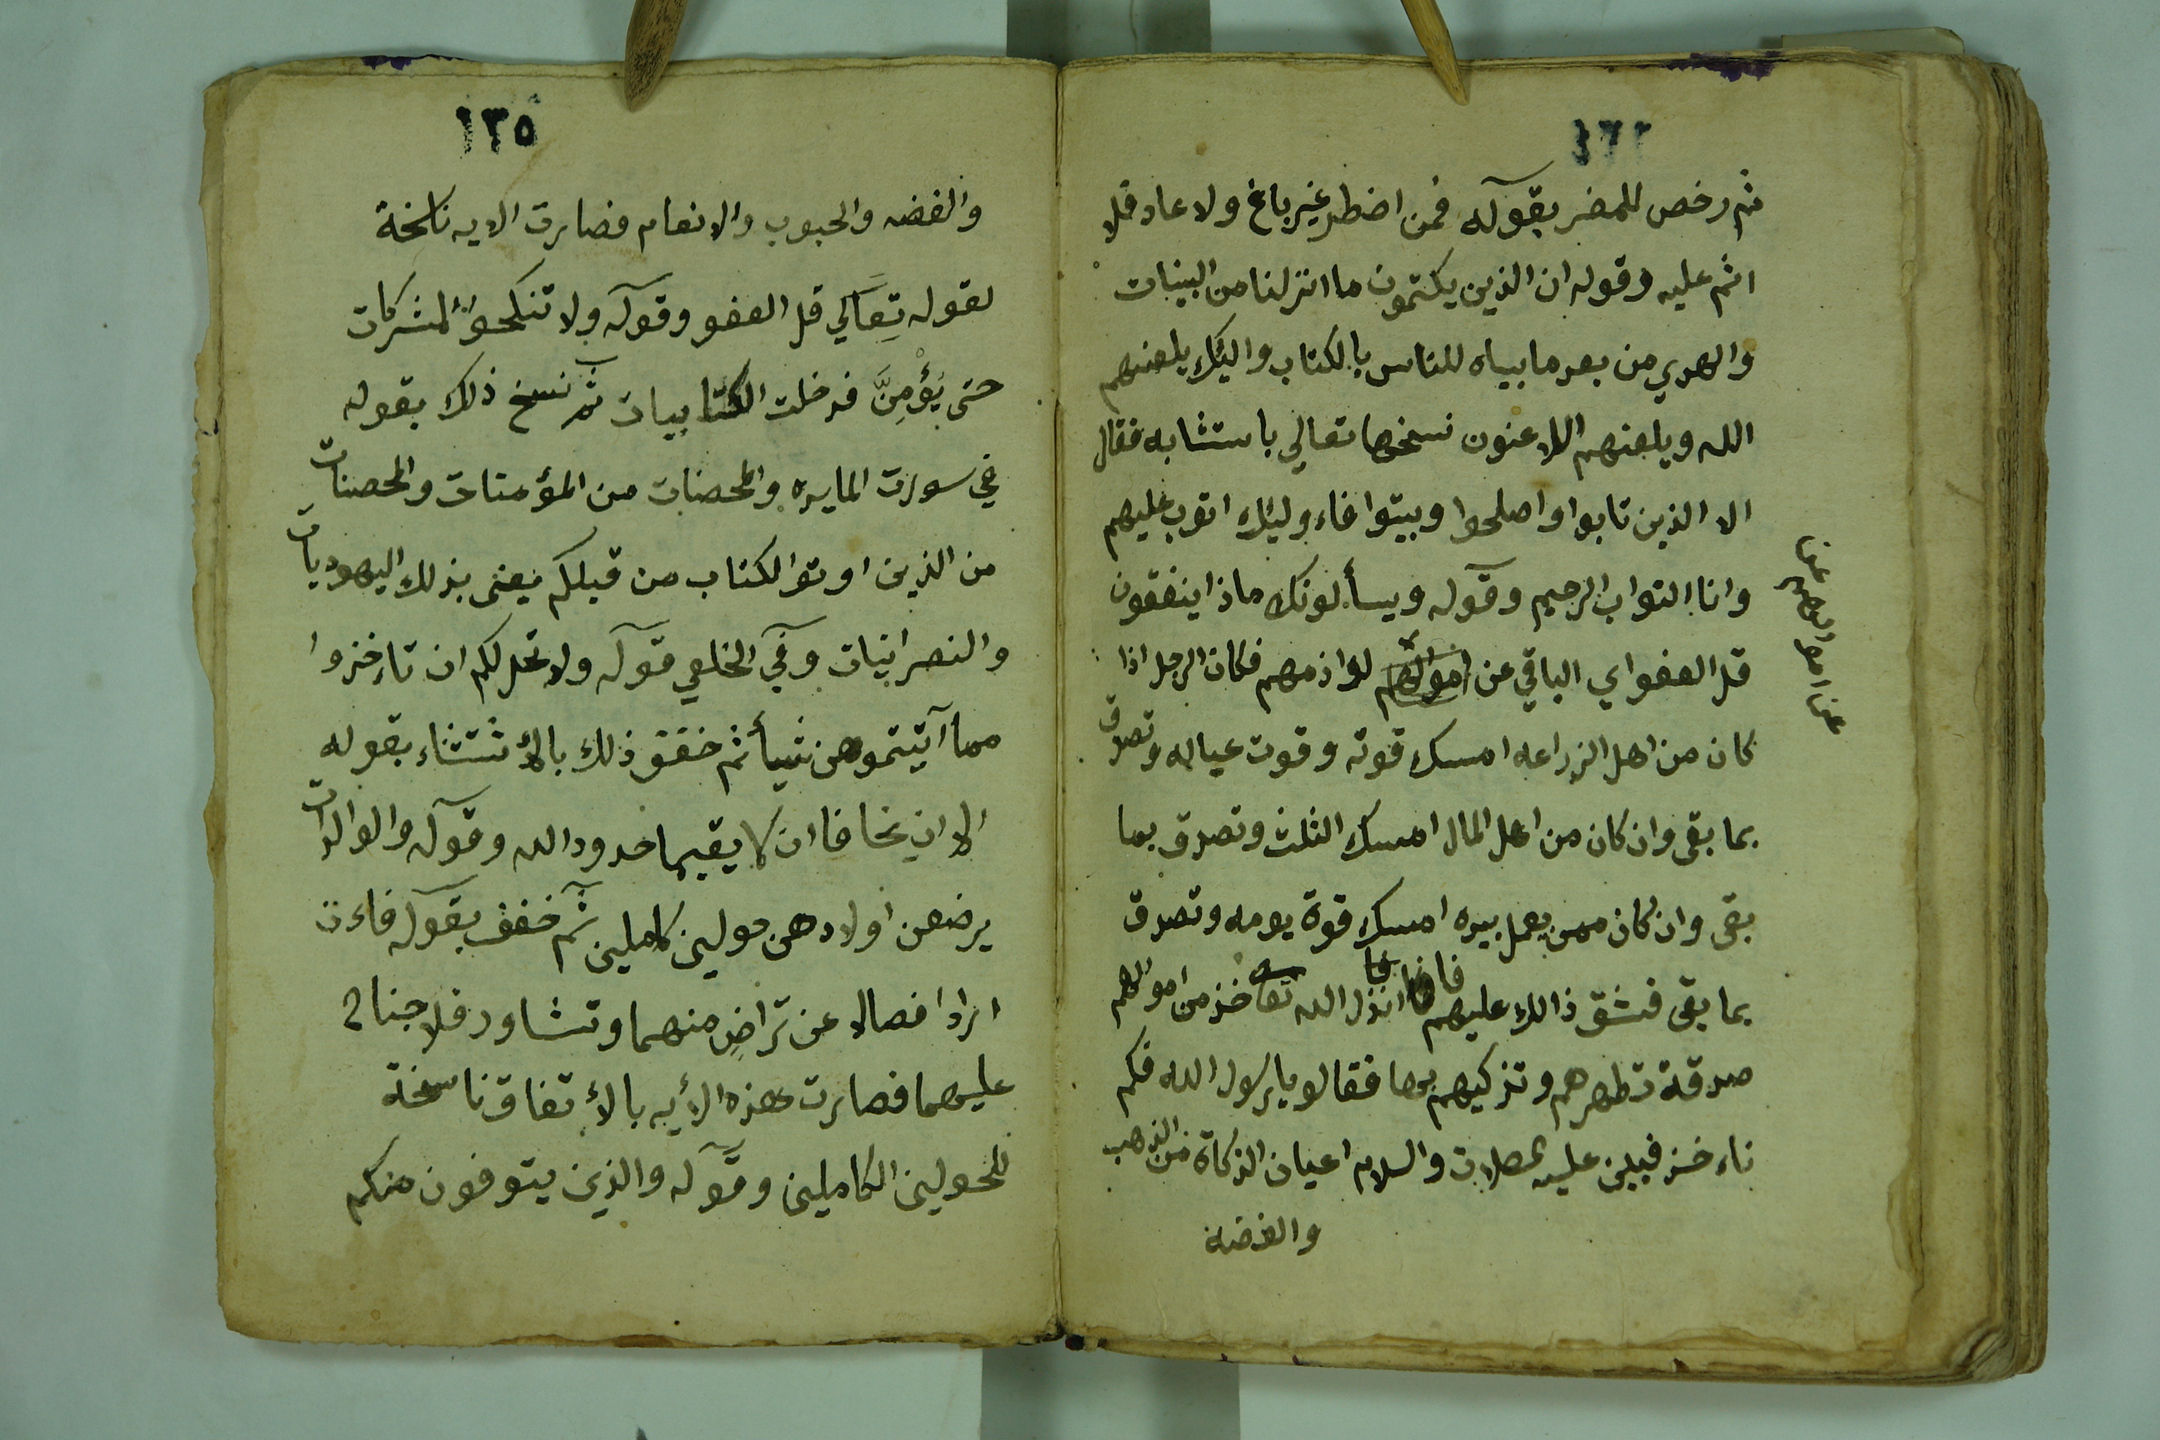 ثم رخص للمضر بقوله فمن اضطر غير باغ ولا عاد فلا
اثم عليه وقوله ان الذين يكتمون ما انزلنا من البينات
والهدي من بعد ما بيناه للناس بالكتاب واليك يلعنهم
الله ويلعنهم اللاعنون نسخها تعالي باستثنابه فقال
الا الذين تابوا واصلحوا وبيتوا فاءوليك اتوب عليهم
وانا التواب الرحيم وقوله ويسألونك ماذا ينفقون
قل العفو اي الباقي عن اموالهم لوازمهم فكان الرجل اذا
كان من اهل الزراعه امسك قوته وقوت عياله وتصدق
بما بقى وان كان من اهل المال امسك الثلث وتصدق بما
بقى وان كان ممن يعمل بيده امسك قوة يومه وتصدق
بما بقى فشق ذالك عليهم فانزل الله تعا خذ من اموالهم
صدقة تطهرهم وتزكيهم بها فقالو يا رسول الله فكم
ناءخذ فبين عليه الصلات والسلام اعيان الزكاة من الذهب
والفضه
١٣٥
والفضه والحبوب والانعام فصارت الايه ناسخة
لقوله تعالي قل العفو وقوله ولا تنكحوا المشركات
حتى يؤمن فدخلت الكتابيات ثم نسخ ذلك بقوله
في سورت المايده والمحصنات من المؤمنات والمحصنات
من الذين اوتو الكتاب من قبلكم يعنى بذلك اليهوديات
والنصرانيات وفي الخلعي قوله ولا تحل لكم ان تاءخذوا
مما آتيتموهن شيأ ثم خفف ذلك بالأستثناء بقوله
الا ان يخافا ان لا يقيما حدود الله وقوله والوالدات
يرضعن اولادهن حولين كاملين ثم خفف بقوله فاءن
ارادا فصالا عن تراض منهما وتشاور فلا جناح
عليهما فصارت هذه الأيه بالأتفاق ناسخة
للحولين الكاملين وقوله والذين يتوفون منكم